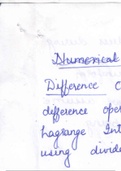 Numerical
Difference
difference oper
Lagrange Int
using divide